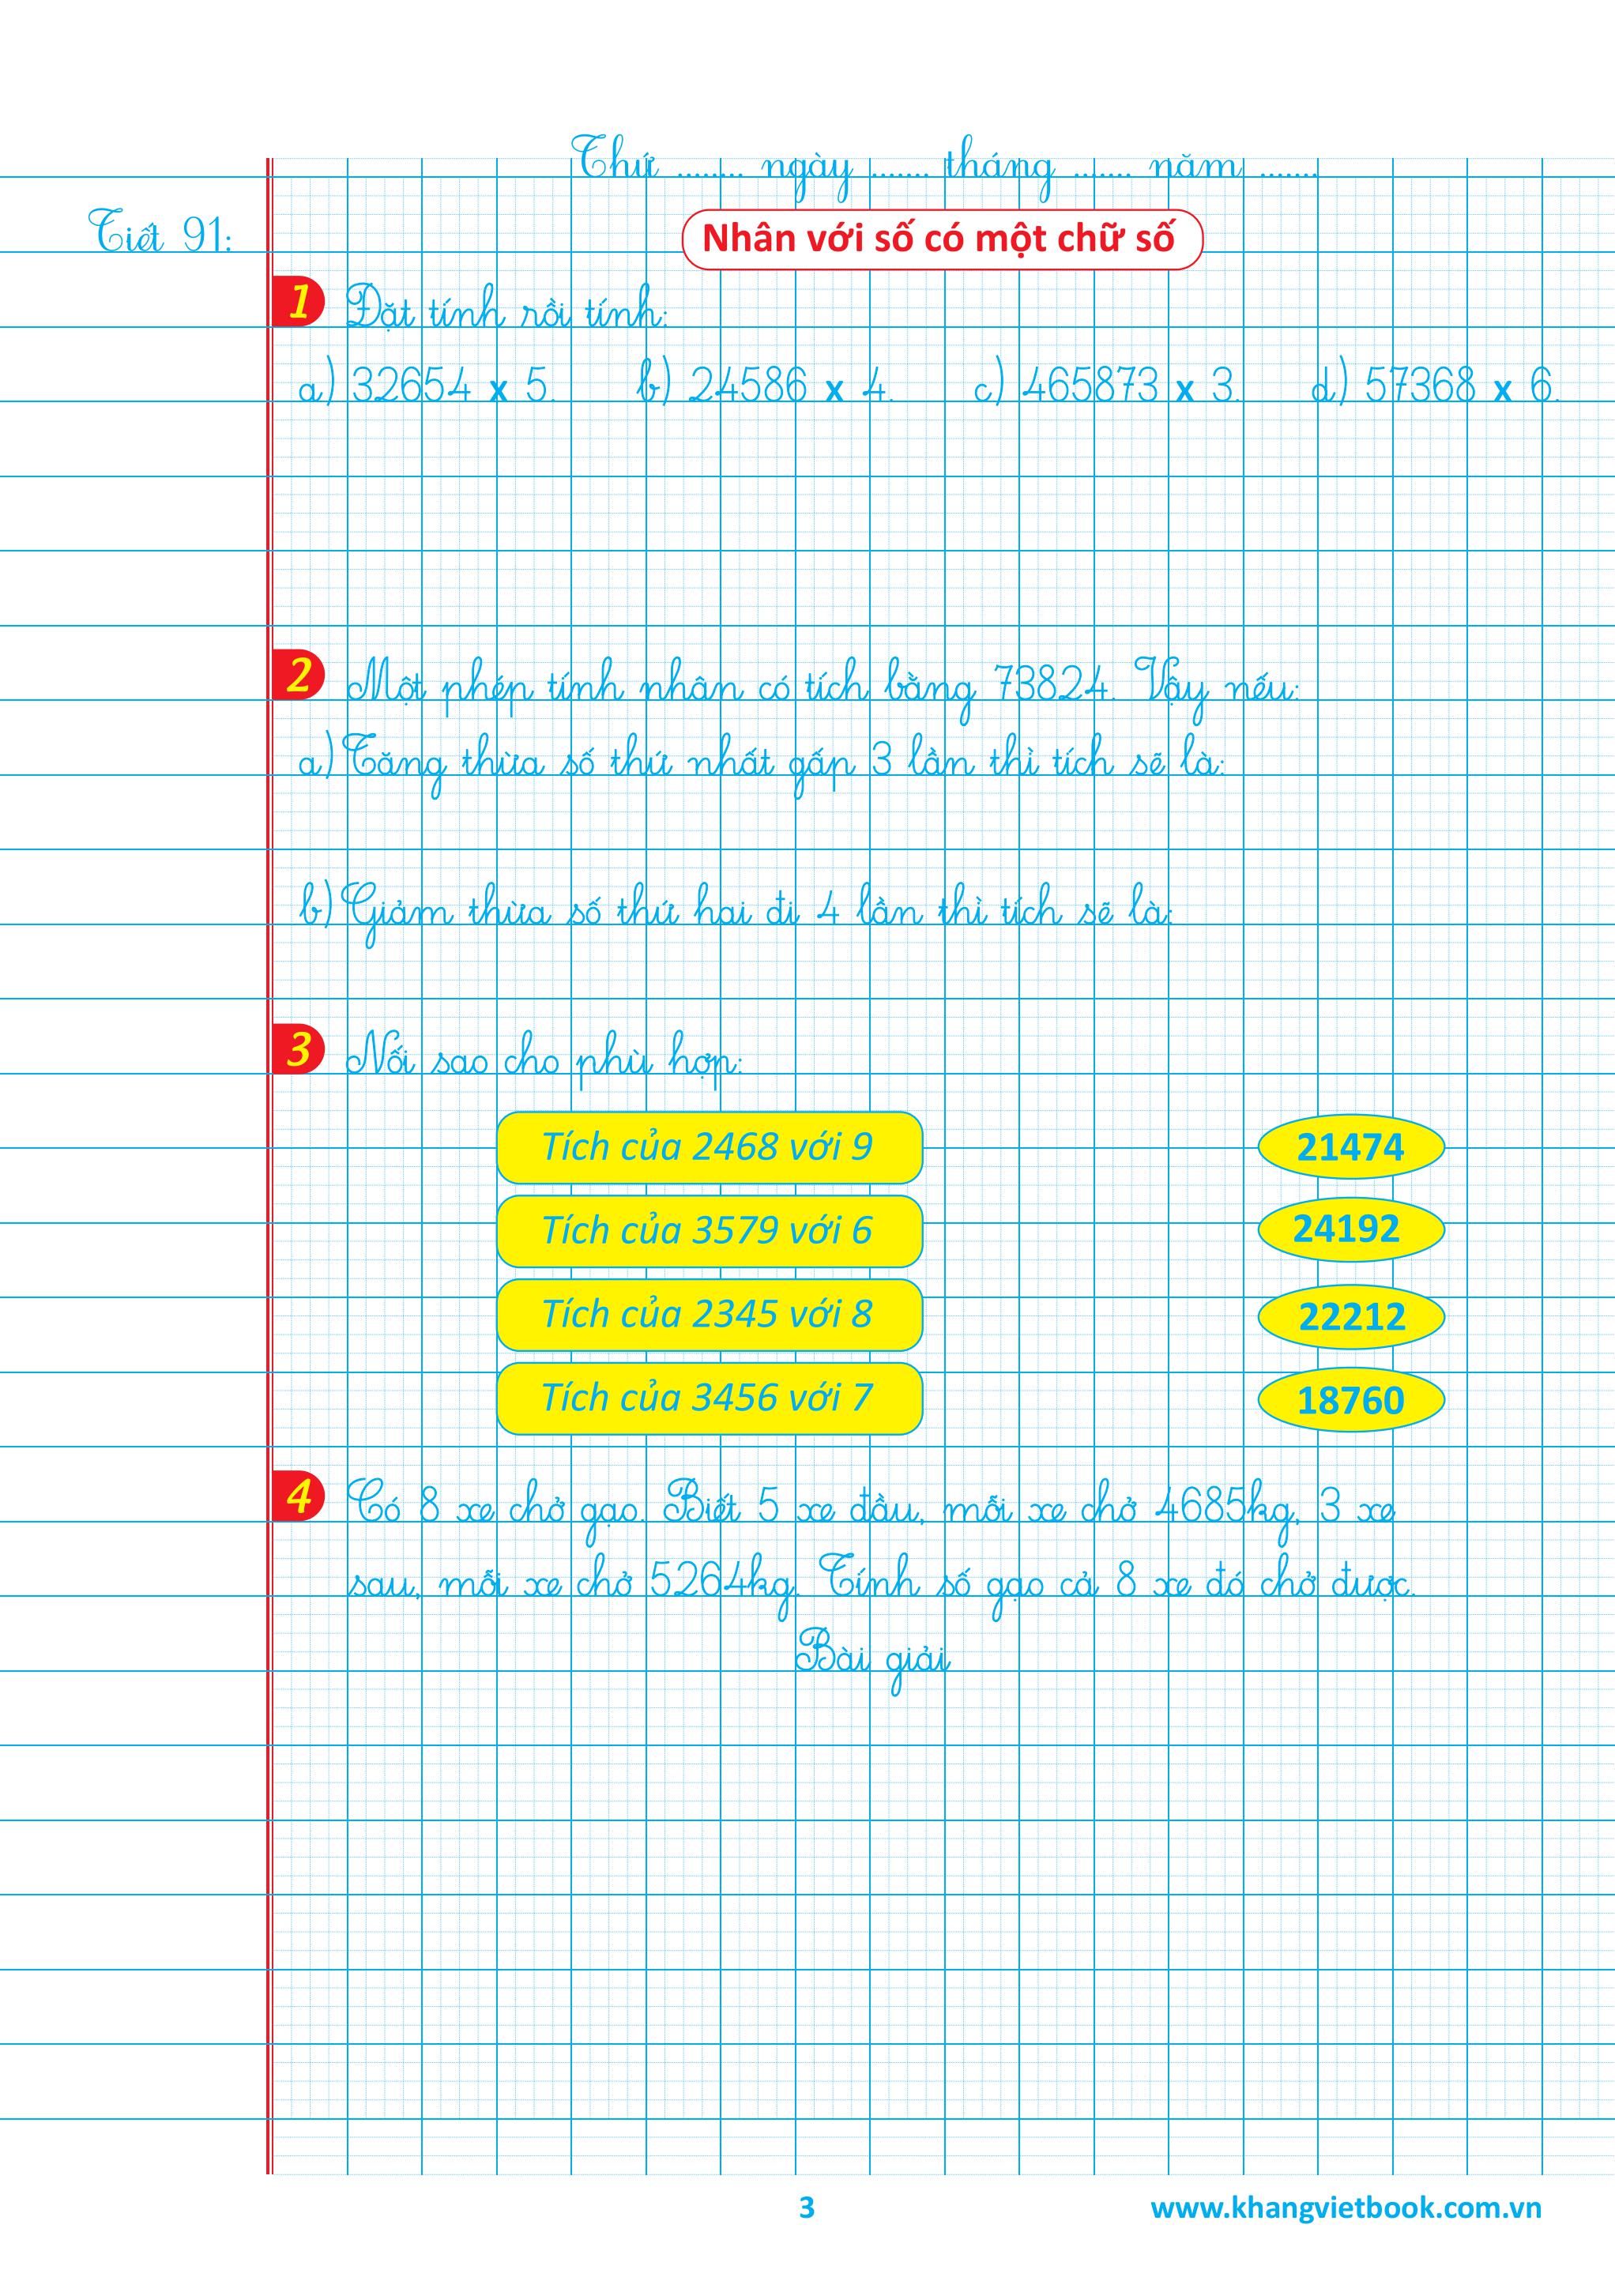 Thứ ........ ngày ....... tháng ....... năm .......
Tiết 91:
Nhân với số có một chữ số
1 Đặt tính rồi tính:
a) 32654 x 5. b) 24586 x 4. c) 465873 x 3. d) 57368 x 6.
2 Một phép tính nhân có tích bằng 73824. Vậy nếu:
a) Tăng thừa số thứ nhất gấp 3 lần thì tích sẽ là:
b) Giảm thừa số thứ hai đi 4 lần thì tích sẽ là:
3 Nối sao cho phù hợp:
Tích của 2468 với 9 21474
Tích của 3579 với 6 24192
Tích của 2345 với 8 22212
Tích của 3456 với 7 18760
4 Có 8 xe chở gạo. Biết 5 xe đầu, mỗi xe chở 4685kg, 3 xe
sau, mỗi xe chở 5264kg. Tính số gạo cả 8 xe đó chở được.
Bài giải
3 www.khangvietbook.com.vn